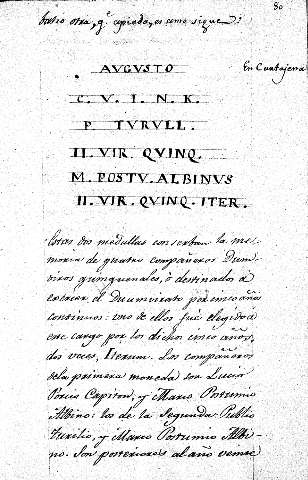 80
batio otra, q.e copiada, es como sigue:
En Cartajena
AUGUSTO
C. V. I. N. K.
P. TURULL.
II. VIR. QUINQ.
M. POSTU. ALBINUS
II. VIR. QUINQ. ITER.
Estas dos medallas conserban la me-
moria de quatro compañeros Dum-
viros quinquenales, ò destinados à
exercer el Duumvirato por cinco años
continuos: uno de ellos fué elegido à
este cargo por los dichos cinco años,
dos veces, Iterum. Los compañeros
de la primera moneda son Lucio
Porcio Capiton, y Marco Postumio
Albino: los de la Segunda Publio
Turelio, y Marco Postumio Albi-
no. Son posteriores al año veinte